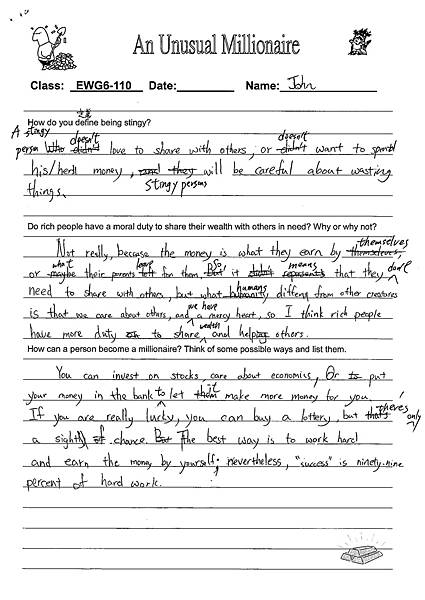 An Unusual Millionaire
Class: EWG6-110 Date: Name: John
定義
How do you define being stingy?
A stingy
person Who doesn't didn't love to share with others, or doesn't didn't want to spend
his/her money, and they will be careful about wasting
things. stingy persons
Do rich people have a moral duty to share their wealth with others in need? Why or why not?
Not really, because the money is what they earn by themselves themselves,
or what maybe their parents leave left for them, So But it didn't means represents that they don't
need to share with others, but what humans humanity differs from other creatures
is that we care about others, and we have a mercy heart, so I think rich people
have more duty on to share wealth and helping others.
How can a person become a millionaire? Think of some possible ways and list them.
You can invest on stocks, care about economics, Or to put
your money in the bank to let it them make more money for you.
If you are really lucky, you can buy a lottery, but that's there's only
a slightly of chance. But The best way is to work hard
and earn the money by yourself; nevertheless, "success" is ninety-nine
percent of hard work.